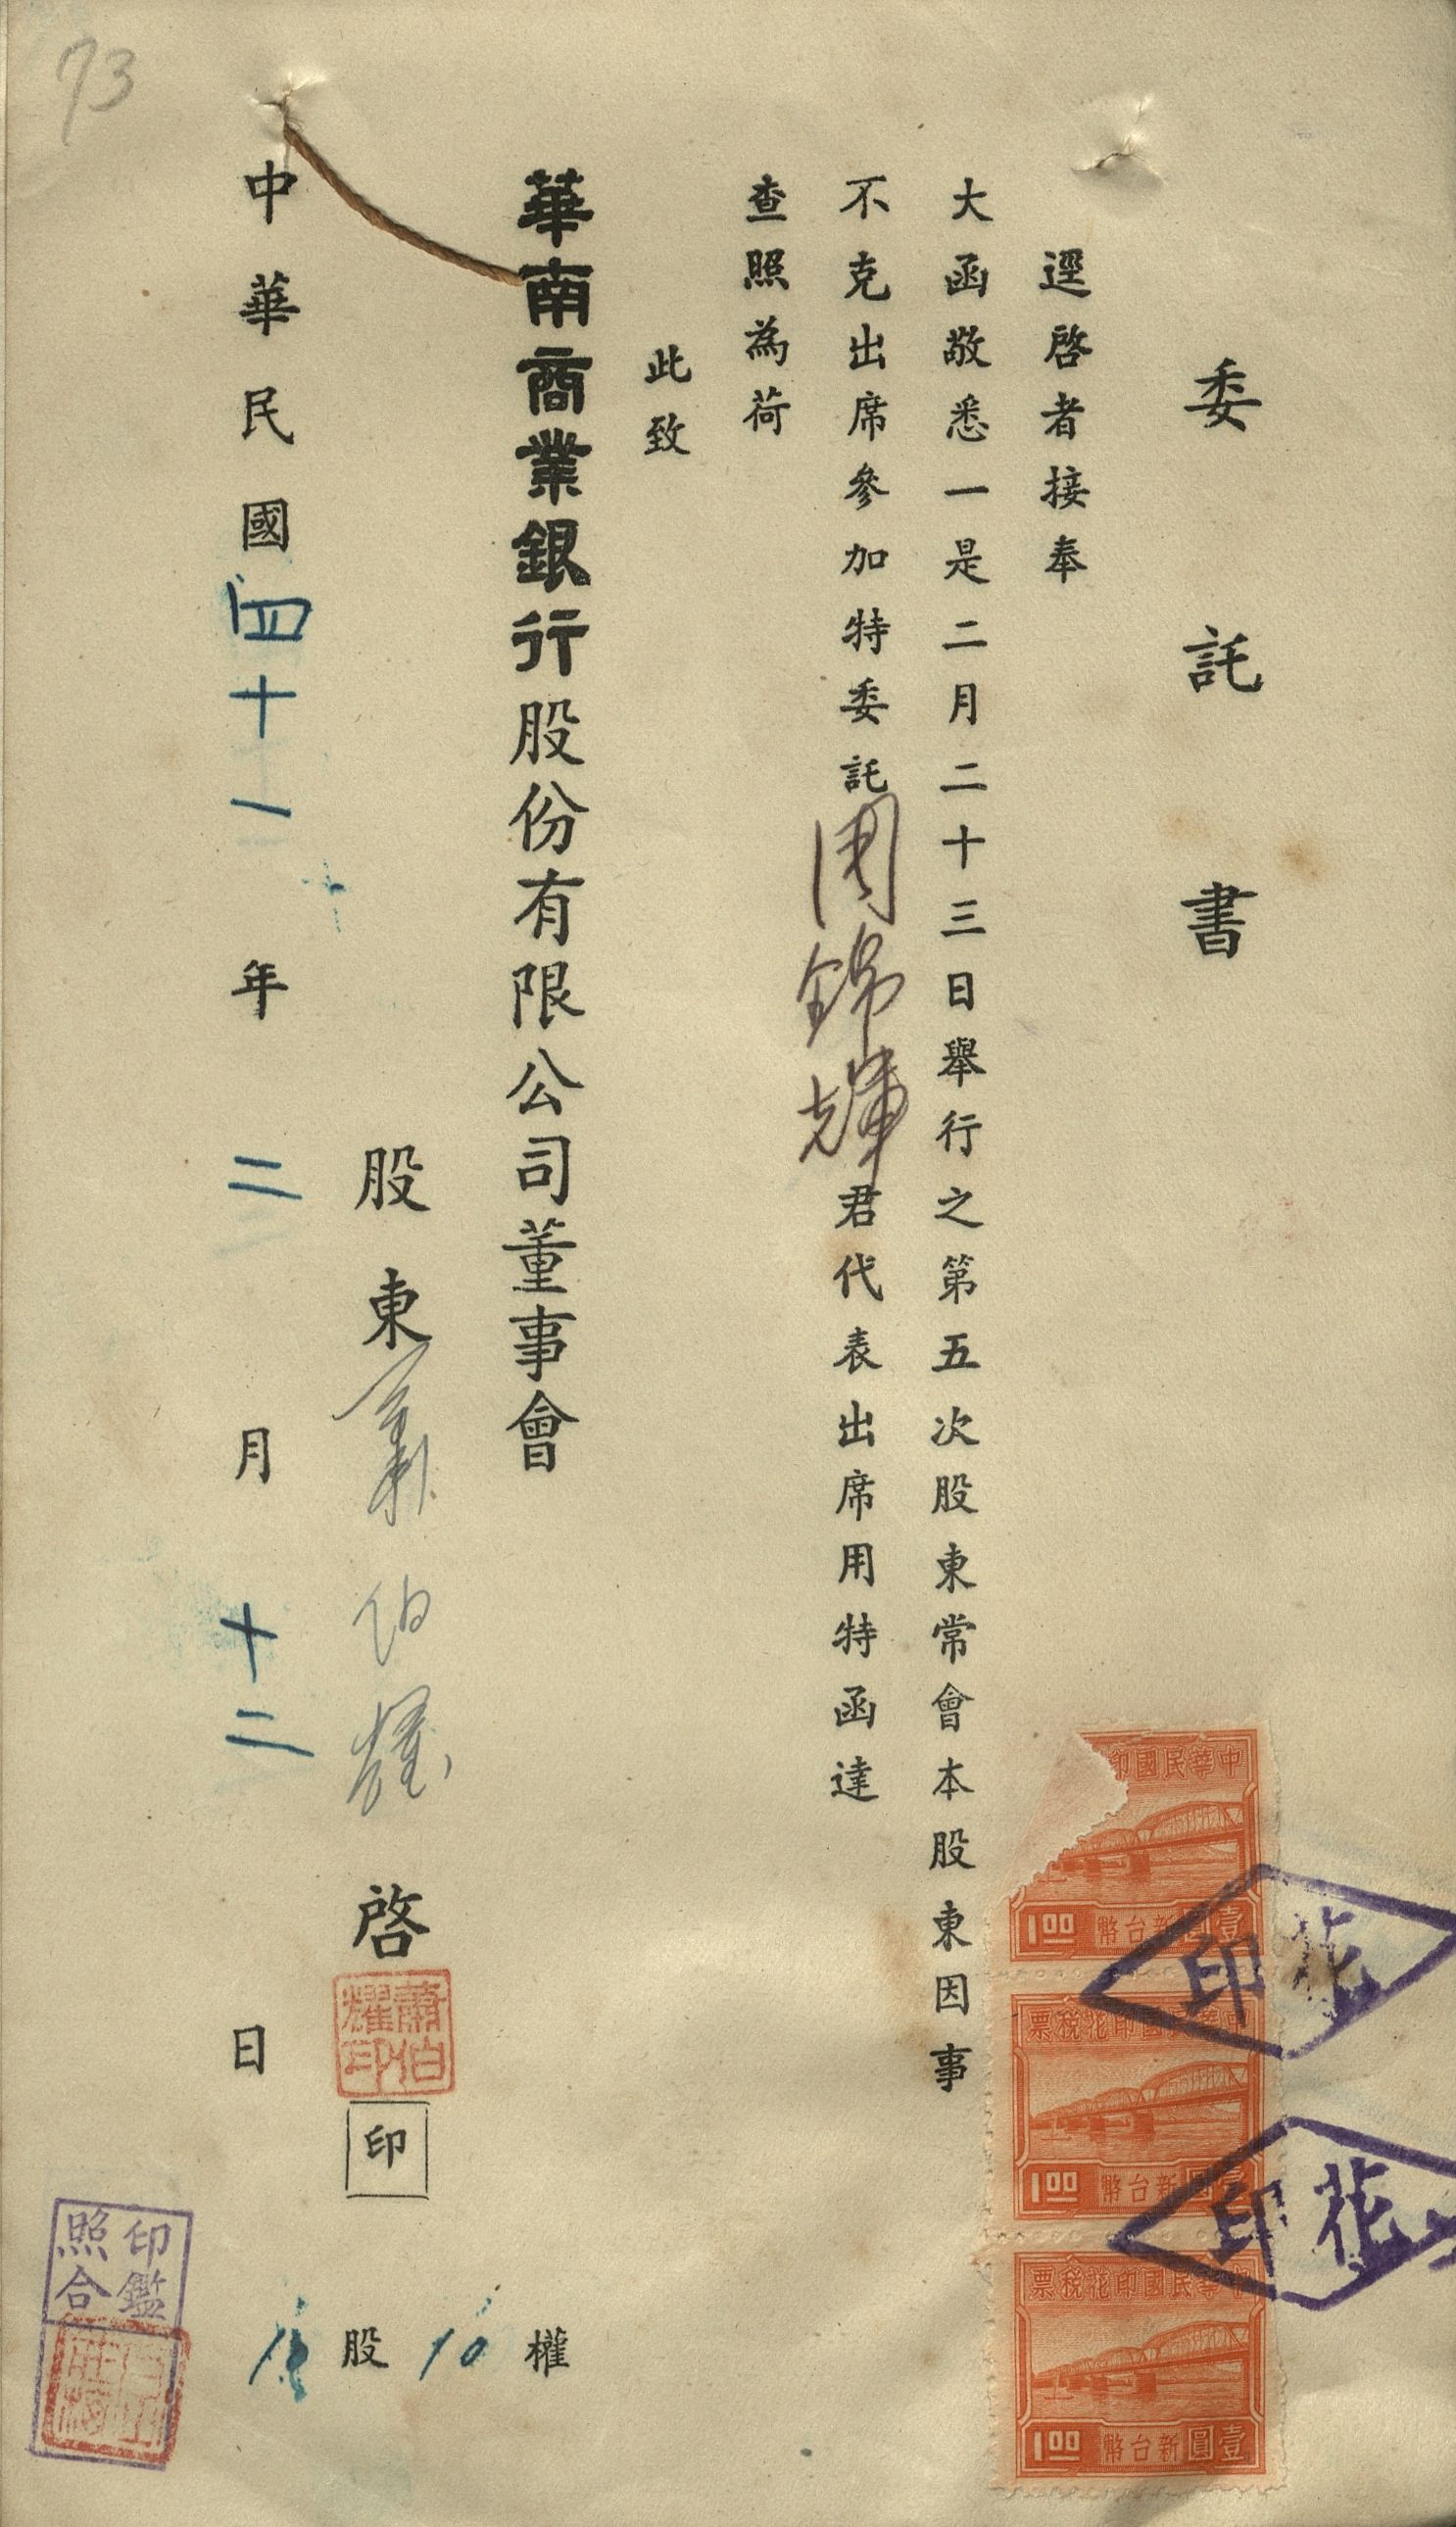 委託書
逕啓者接奉
大函敬悉一是二月二十三日舉行之第五次股東常會本股東因事
不克出席參加特委託周錦輝君代表出席用特函達
查照為荷
此致
華南商業銀行股份有限公司董事會
股東蕭伯耀啓
蕭伯耀印
印
中華民國四十一年二月十二日
股10權
印鑑照合
中華民國印
壹圓新台幣1.00
中華民國印花稅票
壹圓新台幣1.00
中華民國印花稅票
壹圓新台幣1.00
印花
印花
73